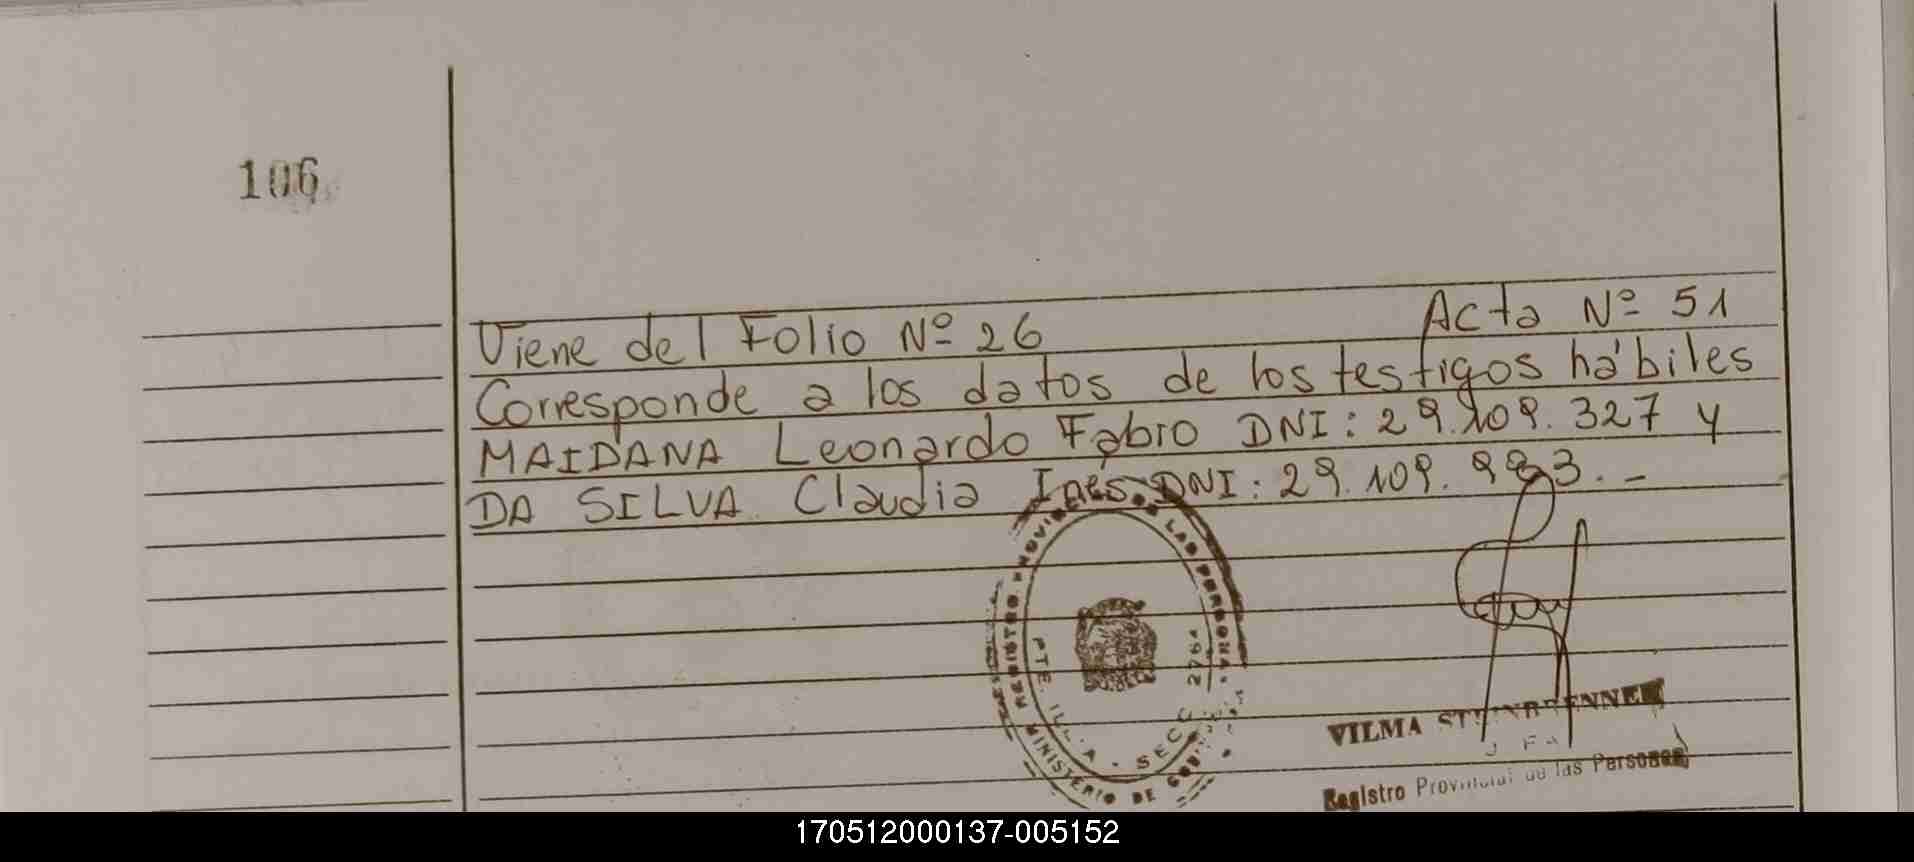 106
Viene del Folio Nº 26 Acta Nº 51
Corresponde a los datos de los testigos hábiles
MAIDANA Leonardo Fabio DNI: 29.109.327 y
DA SILVA Claudia Inés DNI: 29.109.983.-
REGISTRO PROVINCIAL DE LAS PERSONAS
PTE. ILLIA - SECC
MINISTERIO DE
VILMA STEINBRENNER
JEFA
Registro Provincial de las Personas
170512000137-005152